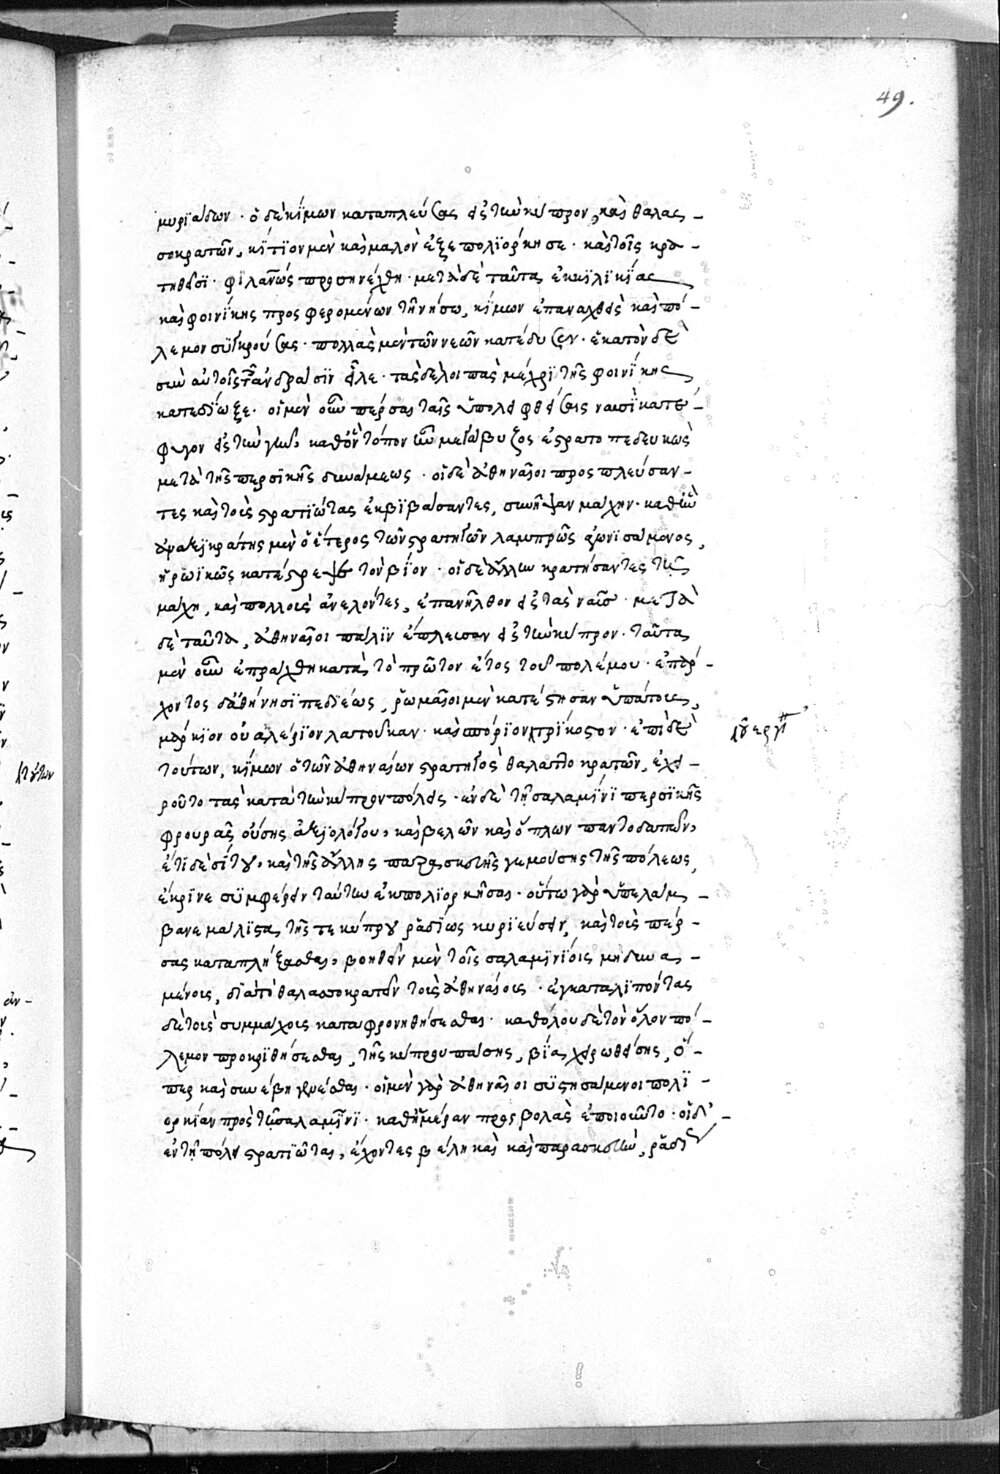 49.
μυριάδων · ὁ δὲ κίμων καταπλεύσας εἰς τὴν κύπρον, καὶ θαλας -
σοκρατῶν, κίτιον μὲν καὶ μαλὸν ἐξεπολιόρκησε · καὶ τοῖς κρα -
τηθεῖσι · φιλανῶς προσηνέχθη · μετὰ δὲ ταῦτα ἐκ κιλικίας
καὶ φοινίκης προσφερομένων τῇ νήσῳ, κίμων ἐπαναχθεὶς καὶ πό -
λεμον συγκρούσας · πολλὰς μὲν τῶν νεῶν κατέδυσεν · ἑκατὸν δὲ
σὺν αὐτοῖς τοῖς ἀνδράσιν εἷλε · τὰς δὲ λοιπὰς μέχρι τῆς φοινίκης
κατεδίωξε · οἱ μὲν οὖν πέρσαι ταῖς ὑπολειφθείσαις ναυσὶ κατέ -
φυγον εἰς τὴν γῆν, καθ' ὃν τόπον ἦν μεγάβυζος ἐστρατοπεδευκὼς
μετὰ τῆς περσικῆς δυνάμεως · οἱ δὲ ἀθηναῖοι προσπλεύσαν -
τες καὶ τοὺς στρατιώτας ἐκβιβάσαντες, συνῆψαν μάχην · καθ' ἣν
ἀναξικράτης μὲν ὁ ἕτερος τῶν στρατηγῶν λαμπρῶς ἀγωνισάμενος,
ἡρωϊκῶς κατέστρεψε τὸν βίον · οἱ δὲ ἄλλοι κρατήσαντες τῇ
μάχῃ, καὶ πολλοὺς ἀνελόντες, ἐπανῆλθον εἰς τὰς ναῦς · μετὰ
δὲ ταῦτα, ἀθηναῖοι πάλιν ἔπλευσαν εἰς τὴν κύπρον · ταῦτα
μὲν οὖν ἐπράχθη κατὰ τὸ πρῶτον ἔτος τοῦ πολέμου · ἐπ' ἄρ -
χοντος δ' ἀθήνησι πεδιέως, ῥωμαῖοι μὲν κατέστησαν ὑπάτους,
μάρκον οὐαλέριον λατοῦκαν · καὶ σπόριον τρίκοστον · ἐπὶ δὲ
τούτων, κίμων ὁ τῶν ἀθηναίων στρατηγὸς θαλαττοκρατῶν, ἐχει -
ροῦτο τὰς κατὰ τὴν κύπρον πόλεις · ἐν δὲ τῇ σαλαμῖνι περσικῆς
φρουρᾶς οὔσης ἀξιολόγου, καὶ βελῶν καὶ ὅπλων παντοδαπῶν,
ἔτι δὲ σίτου, καὶ τῆς ἄλλης παρασκευῆς γεμούσης τῆς πόλεως,
ἔκρινε συμφέρειν ταύτην ἐκπολιορκῆσαι · οὕτω γὰρ ὑπελάμ -
βανε μάλιστα τῆς τε κύπρου ῥᾳδίως κυριεύσειν, καὶ τοὺς πέρ -
σας καταπλήξεσθαι, βοηθεῖν μὲν τοῖς σαλαμινίοις μὴ δυνα -
μένοις, διὰ τὸ θαλασσοκρατεῖν τοὺς ἀθηναίους · ἐγκαταλιπόντας
δὲ τοὺς συμμάχους καταφρονηθήσεσθαι · καθόλου δὲ τὸν ὅλον πό -
λεμον προκριθήσεσθαι, τῆς κύπρου πάσης, βίᾳ χειρωθείσης, ὅ -
περ καὶ συνέβη γενέσθαι · οἱ μὲν γὰρ ἀθηναῖοι συστησάμενοι πολι -
ορκίαν πρὸς τῇ σαλαμῖνι · καθ' ἡμέραν προσβολὰς ἐποιοῦντο · οἱ δ' -
ἐν τῇ πόλει στρατιῶται, ἔχοντες βέλη καὶ παρασκευὴν, ῥᾳδί